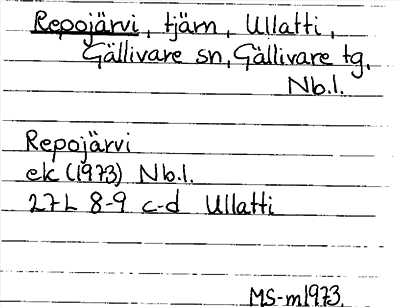 Repojärvi, tjärn, Ullatti,
Gällivare sn, Gällivare tg.
Nb.l.
Repojärvi
ek (1973) Nb.l.
27L 8-9 c-d Ullatti
MS-m1973.